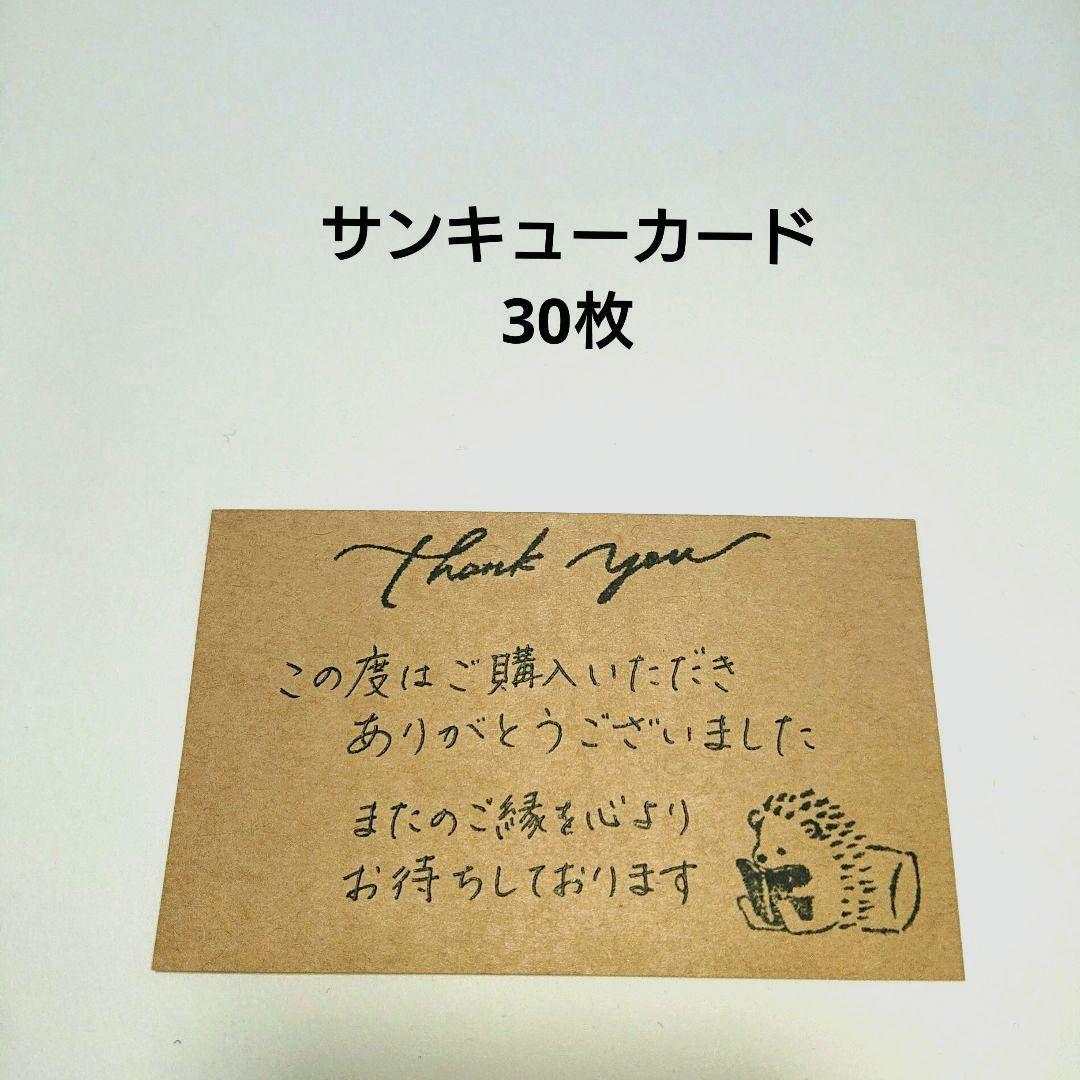 サンキューカード
30枚
Thank you
この度はご購入いただき
ありがとうございました
またのご縁を心より
お待ちしております